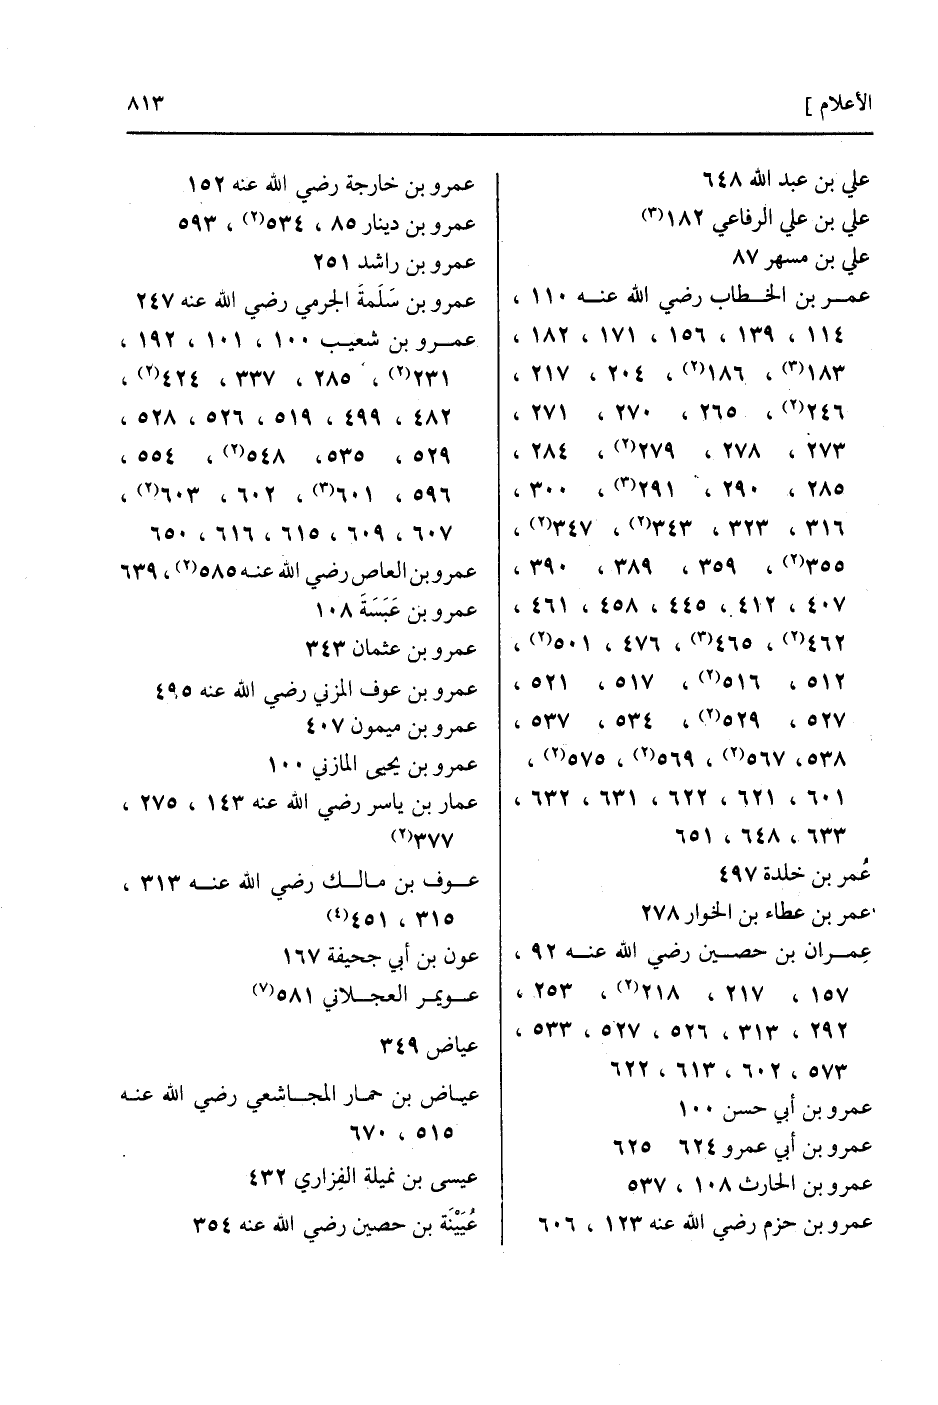 الأعلام ]
٨١٣
علي بن عبد الله ٦٤٨
علي بن علي الرفاعي ١٨٢(٣)
علي بن مسهر ٨٧
عمـر بن الخـطاب رضي الله عنـه ١١٠ ،
١١٤ ، ١٣٩ ، ١٥٦ ، ١٧١ ، ١٨٢ ،
١٨٣(٣) ، ١٨٦(٢) ، ٢٠٤ ، ٢١٧ ،
٢٤٦(٢) ، ٢٦٥ ، ٢٧٠ ، ٢٧١ ،
٢٧٣ ، ٢٧٨ ، ٢٧٩(٢) ، ٢٨٤ ،
٢٨٥ ، ٢٩٠ ، ٢٩١(٣) ، ٣٠٠ ،
٣١٦ ، ٣٢٣ ، ٣٤٣(٢) ، ٣٤٧(٢) ،
٣٥٥(٢) ، ٣٥٩ ، ٣٨٩ ، ٣٩٠ ،
٤٠٧ ، ٤١٢ ، ٤٤٥ ، ٤٥٨ ، ٤٦١ ،
٤٦٢(٢) ، ٤٦٥(٣) ، ٤٧٦ ، ٥٠١(٢) ،
٥١٢ ، ٥١٦(٢) ، ٥١٧ ، ٥٢١ ،
٥٢٧ ، ٥٢٩(٢) ، ٥٣٤ ، ٥٣٧ ،
٥٣٨ ، ٥٦٧(٢) ، ٥٦٩(٢) ، ٥٧٥(٢) ،
٦٠١ ، ٦٢١ ، ٦٢٢ ، ٦٣١ ، ٦٣٢ ،
٦٣٣ ، ٦٤٨ ، ٦٥١
عُمر بن خلدة ٤٩٧
عمر بن عطاء بن الخوار ٢٧٨
عِمـران بن حصـين رضي الله عنـه ٩٢ ،
١٥٧ ، ٢١٧ ، ٢١٨(٢) ، ٢٥٣ ،
٢٩٢ ، ٣١٣ ، ٥٢٦ ، ٥٢٧ ، ٥٣٣ ،
٥٧٣ ، ٦٠٢ ، ٦١٣ ، ٦٢٢
عمرو بن أبي حسن ١٠٠
عمرو بن أبي عمرو ٦٢٤ ٦٢٥
عمرو بن الحارث ١٠٨ ، ٥٣٧
عمرو بن حزم رضي الله عنه ١٢٣ ، ٦٠٦
عمرو بن خارجة رضي الله عنه ١٥٢
عمرو بن دينار ٨٥ ، ٥٣٤(٢) ، ٥٩٣
عمرو بن راشد ٢٥١
عمرو بن سَلَمَةَ الجرمي رضي الله عنه ٢٤٧
عمـرو بن شعيـب ١٠٠ ، ١٠١ ، ١٩٢ ،
٢٣١(٢) ، ٢٨٥ ، ٣٣٧ ، ٤٢٤(٢) ،
٤٨٢ ، ٤٩٩ ، ٥١٩ ، ٥٢٦ ، ٥٢٨ ،
٥٢٩ ، ٥٣٥ ، ٥٤٨(٢) ، ٥٥٤ ،
٥٩٦ ، ٦٠١(٣) ، ٦٠٢ ، ٦٠٣(٢) ،
٦٠٧ ، ٦٠٩ ، ٦١٥ ، ٦١٦ ، ٦٥٠
عمرو بن العاص رضي الله عنه ٥٨٥(٢) ، ٦٣٩
عمرو بن عَبَسَةَ ١٠٨
عمرو بن عثمان ٣٤٣
عمرو بن عوف المزني رضي الله عنه ٤٩٥
عمرو بن ميمون ٤٠٧
عمرو بن يحيى المازني ١٠٠
عمار بن ياسر رضي الله عنه ١٤٣ ، ٢٧٥ ،
٣٧٧(٢)
عـوف بن مالـك رضي الله عنـه ٣١٣ ،
٣١٥ ، ٤٥١(٤)
عون بن أبي جحيفة ١٦٧
عـويمـر العجـلاني ٥٨١(٧)
عياض ٣٤٩
عيـاض بن حمـار المجـاشعي رضي الله عنـه
٥١٥ ، ٦٧٠
عيسى بن نميلة الفزاري ٤٣٢
عُيَيْنَة بن حصين رضي الله عنه ٣٥٤